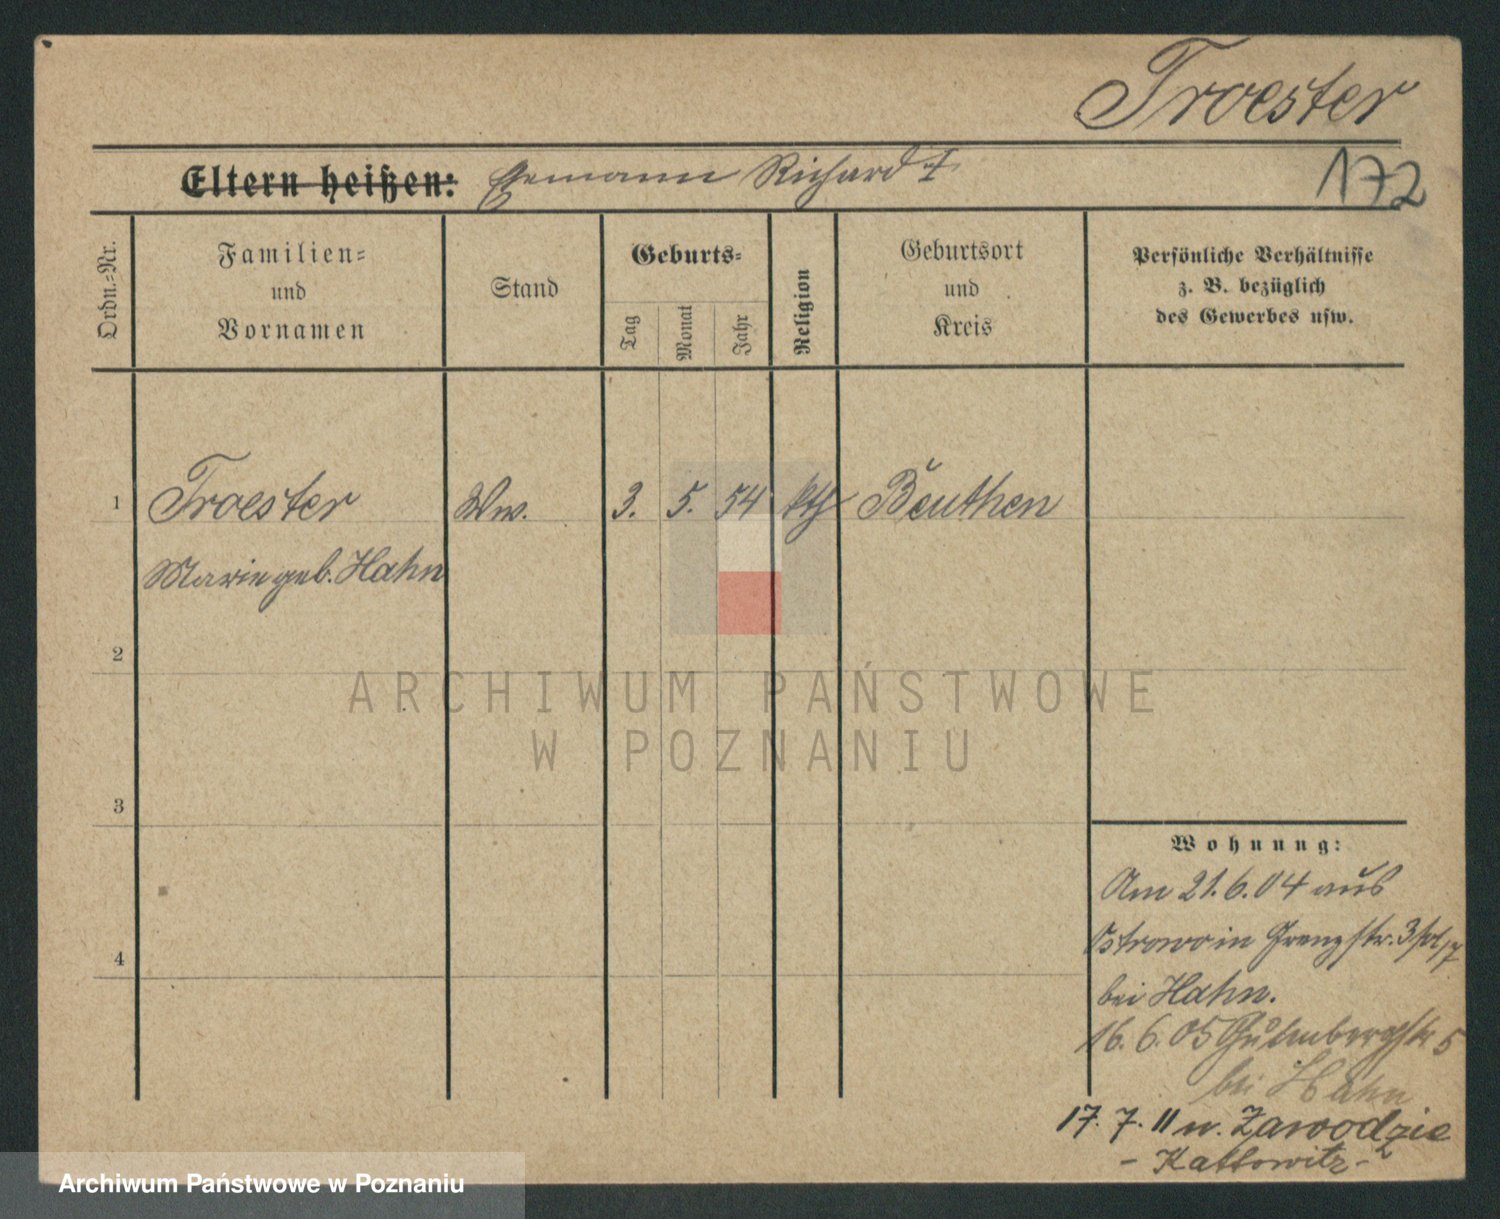 Troester
Eltern heißen: Ehemann Richard †
172
Ordn.=Nr.
Familien=
und
Vornamen
Stand
Geburts=
Tag
Monat
Jahr
Religion
Geburtsort
und
Kreis
Persönliche Verhältnisse
z. B. bezüglich
des Gewerbes usw.
1 Troester Ww. 3. 5. 54 kth Beuthen
Marie geb. Hahn
2
3
4
Wohnung:
Am 21.6.04 aus
Ostrowo in Grenzstr. 3
bei Hahn.
16.6.05 5
bei Hahn
17.7.11 n. Zawodzie
- Kattowitz -
ARCHIWUM PAŃSTWOWE
W POZNANIU
Archiwum Państwowe w Poznaniu